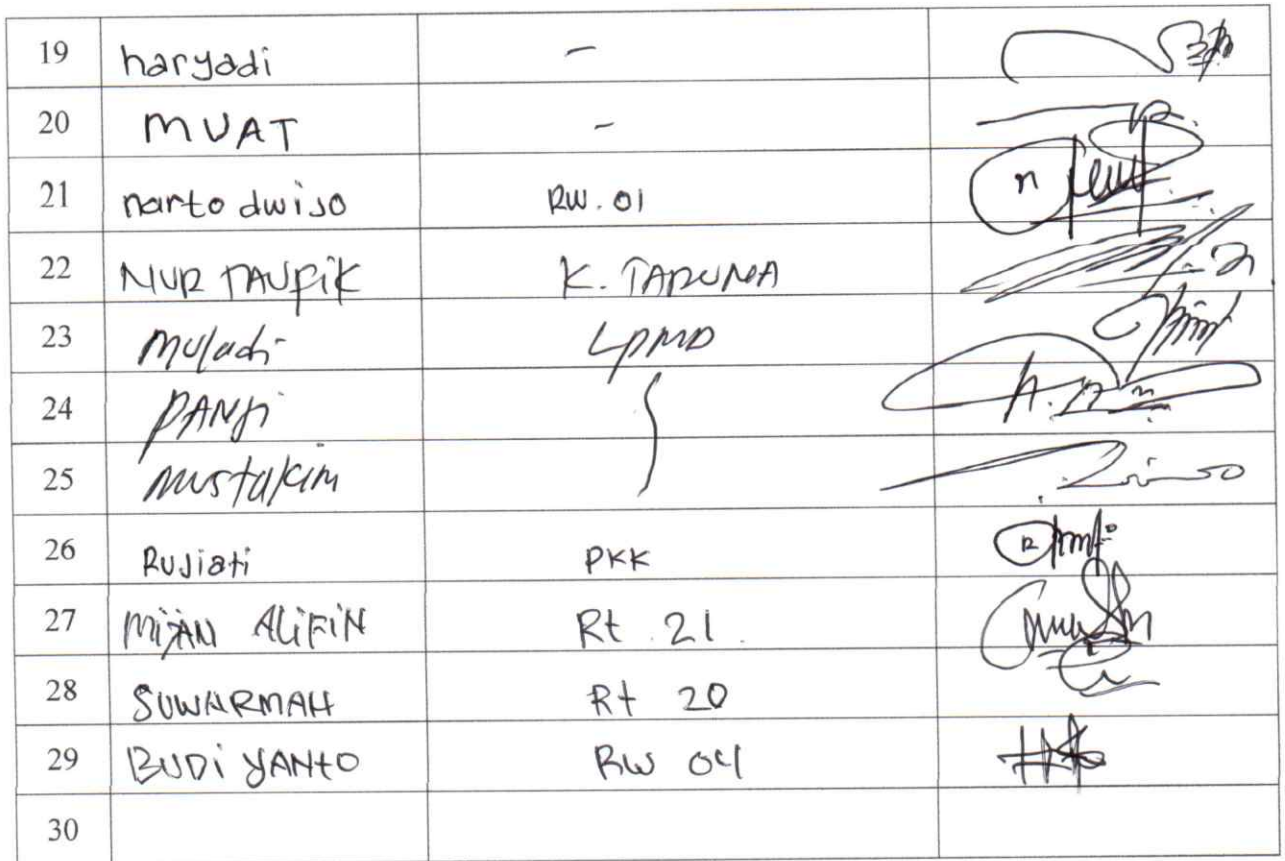 19 haryadi -
20 MUAT -
21 narto dwijo RW. 01
22 NUR TAUFIK K. TARUNA
23 Muladi LPMD
24 PANJI
25 Mustakim
26 Rujiati PKK
27 MIJAN ALIFIN Rt 21.
28 SUWARMAH Rt 20
29 BUDI YANTO RW 04
30